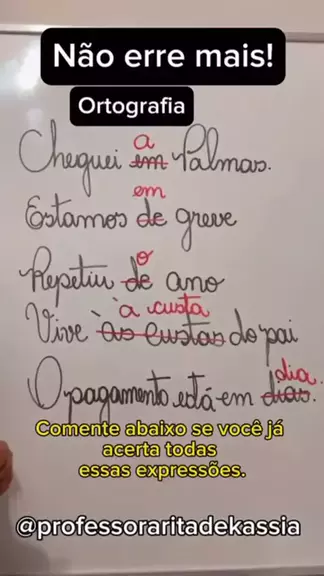 Não erre mais!
Ortografia
a
Cheguei em Palmas.
em
Estamos de greve
o
Repetiu de ano
à custa
Vive às custas do pai
dia
O pagamento está em dias.
Comente abaixo se você já
acerta todas
essas expressões.
@professoraritadekassia